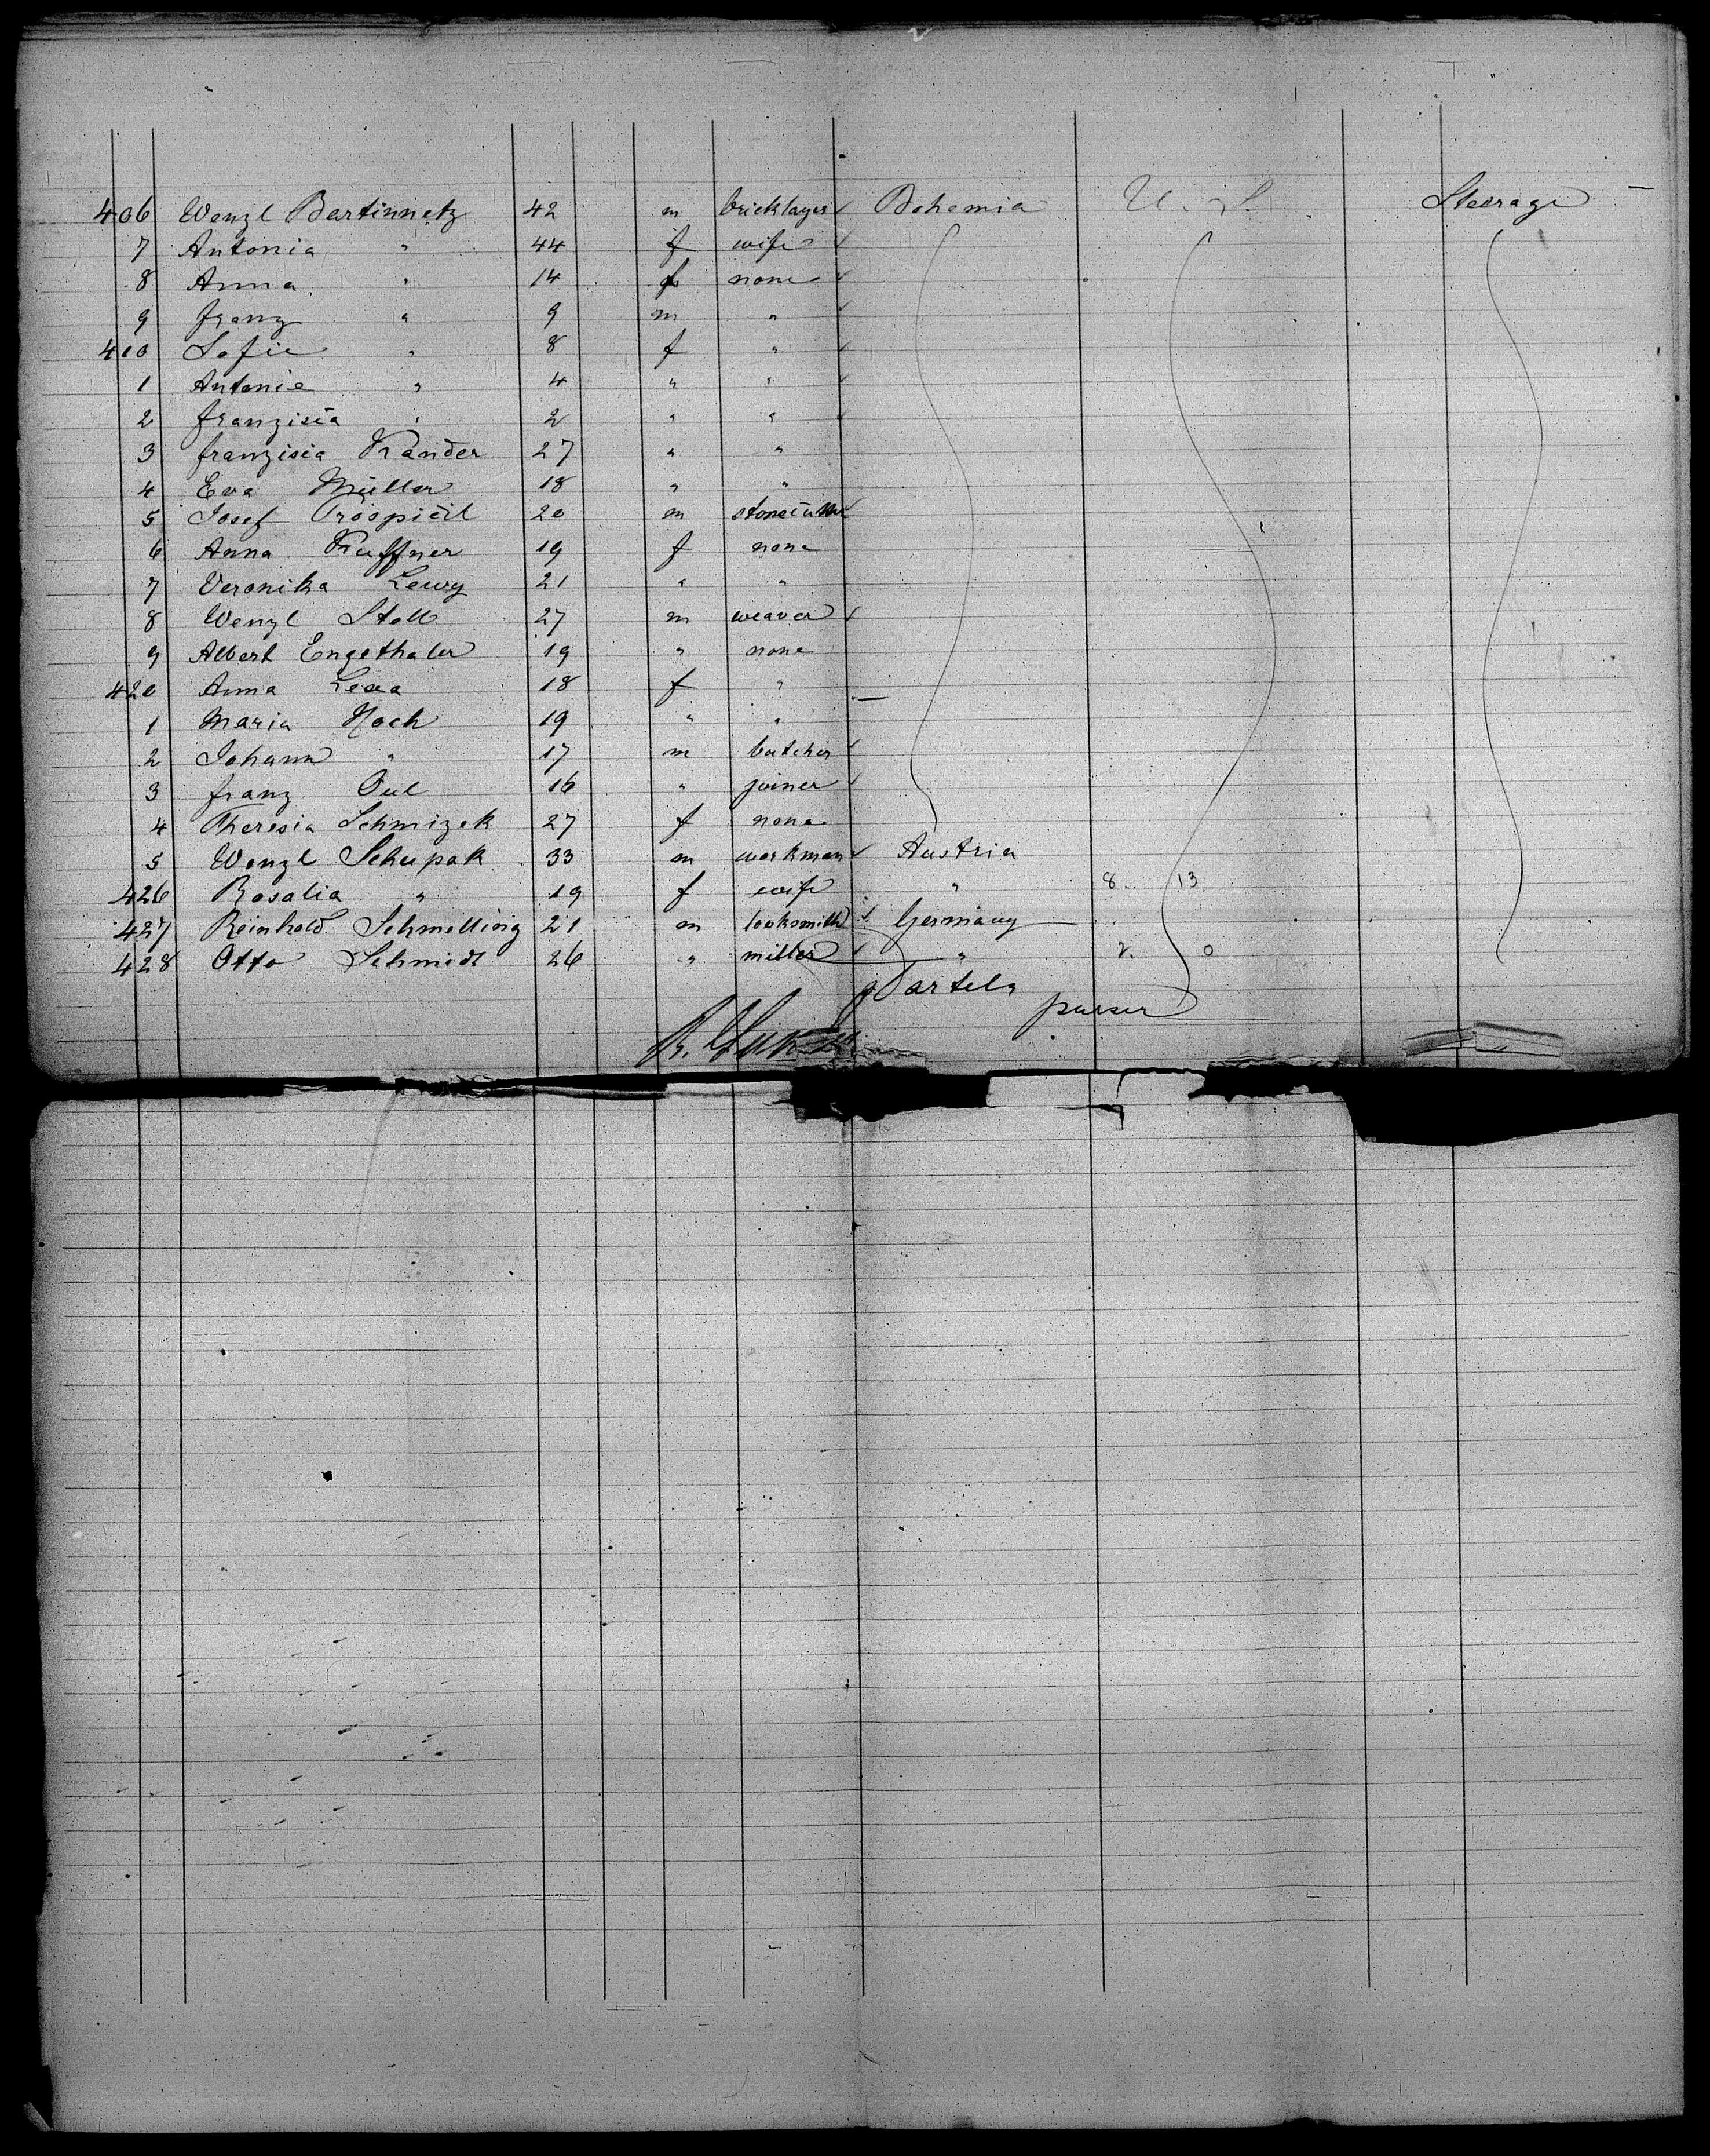 406 Wenzl Bartinnetz 42 m bricklayer Bohemia U. S. Steerage
7 Antonia " 44 f wife
8 Anna " 14 f none
9 Franz " 9 m "
410 Sofie " 8 f "
1 Antonie " 4 " "
2 Franzisca " 2 " "
3 Franzisca Kander 27 " "
4 Eva Müller 18 " "
5 Josef 20 m stonecutter
6 Anna Kuffner 19 f none
7 Veronika 21 " "
8 Wenzl Stoll 27 m weaver
9 Albert Engethaler 19 " none
420 Anna Lexa 18 f "
1 Maria Koch 19 " "
2 Johann " 17 m butcher
3 Franz 16 " joiner
4 Theresia Schmizek 27 f none
5 Wenzl Schupak 33 m workman Austria
426 Rosalia " 19 f wife " 8. 13
427 Reinhold Schmelling 21 m locksmith Germany
428 Otto Schmidt 26 " miller " 2. 0
Bartels
purser